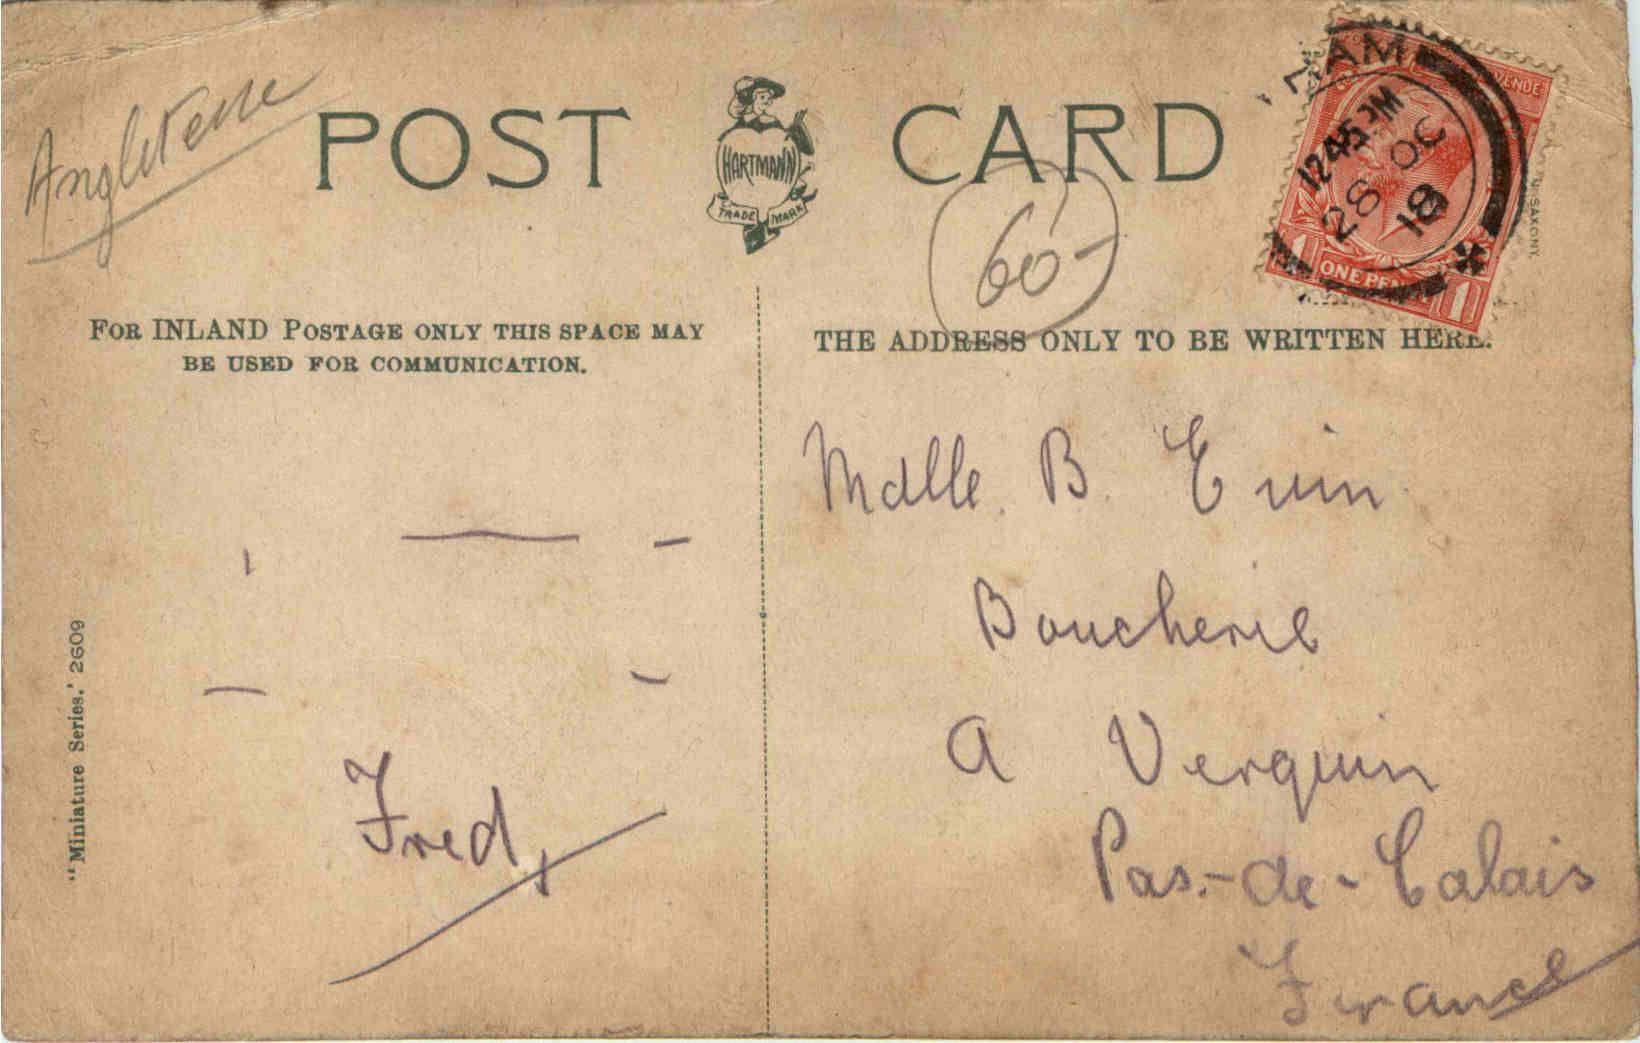 Angleterre
POST CARD
HARTMANN
TRADE MARK
60-
FOR INLAND POSTAGE ONLY THIS SPACE MAY
BE USED FOR COMMUNICATION.
THE ADDRESS ONLY TO BE WRITTEN HERE.
12 45 PM
28 OC
18
ONE PENNY
1
SAXONY
Mdlle. B.
Boucherie
A Verquin
Pas-de-Calais
France
Fred,
"Miniature Series.' 2609